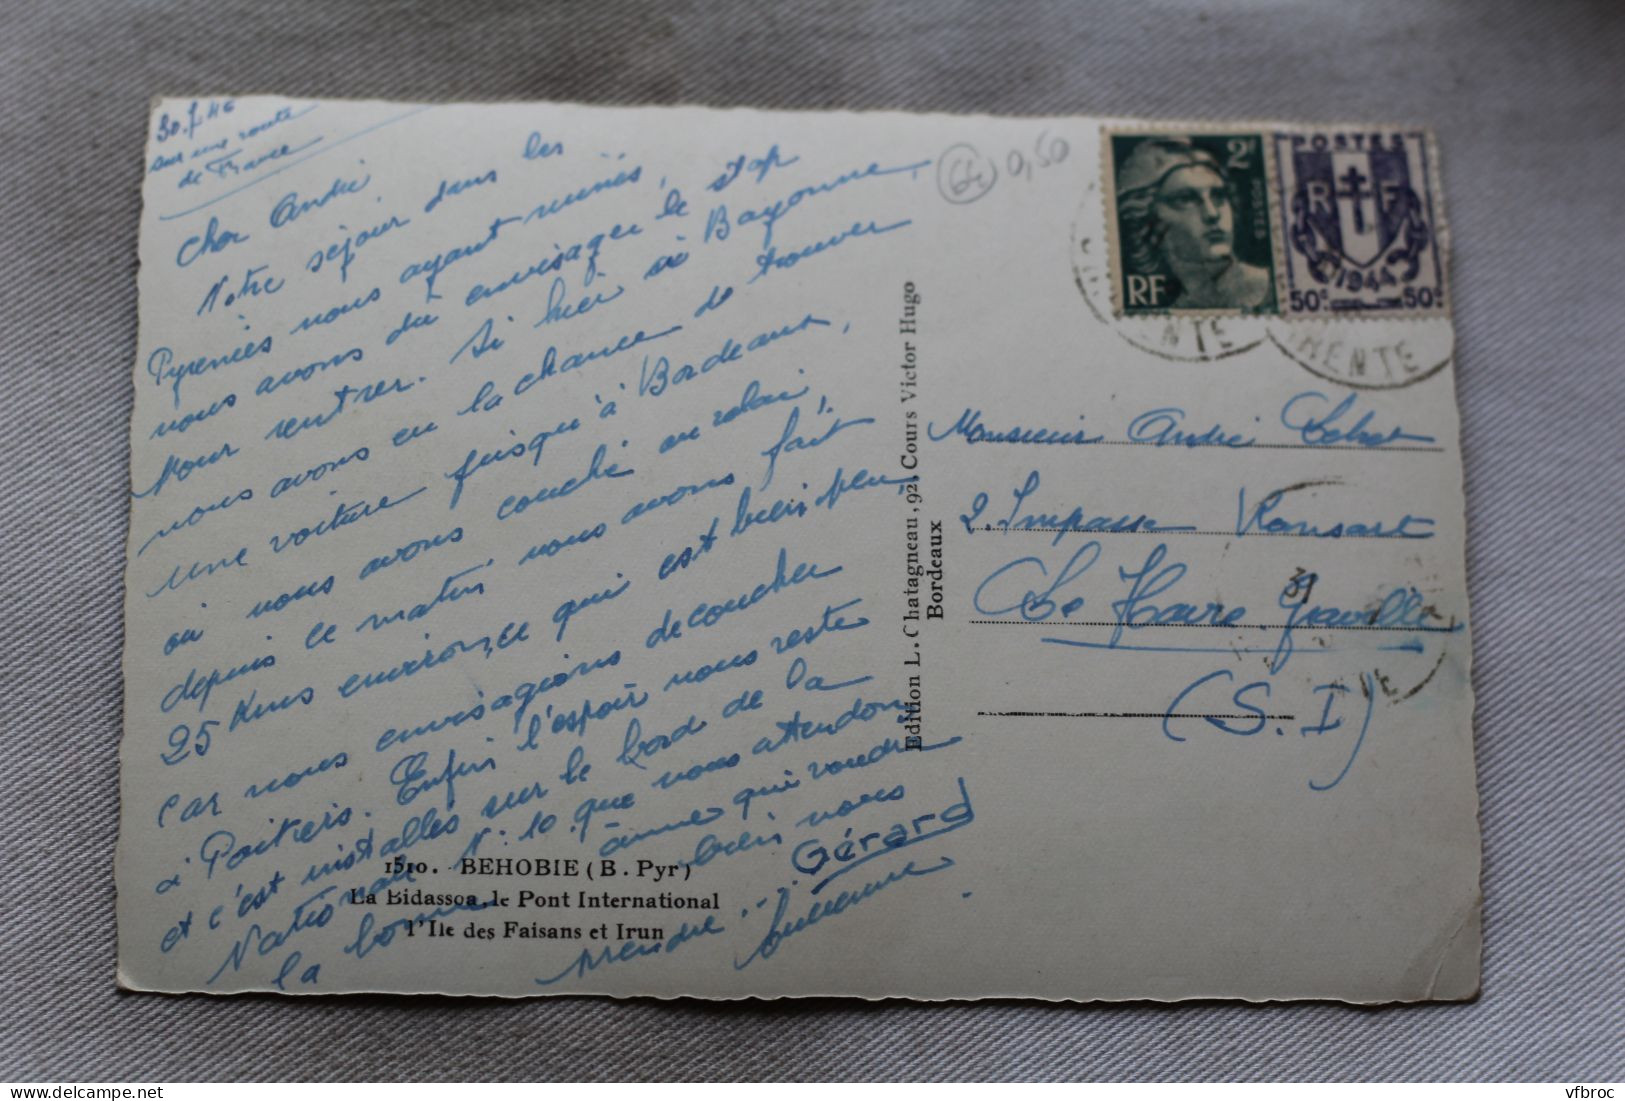 30.7.46
sur une route
de France
Cher André
Notre séjour dans les
Pyrénées nous ayant ruinés,
nous avons dû envisager le stop
pour rentrer. Si hier à Bayonne,
nous avons eu la chance de trouver
une voiture jusqu'à Bordeaux,
où nous avons couché au relai,
depuis ce matin nous avons fait
25 Kms environ, ce qui est bien peu
car nous envisagions de coucher
à Poitiers. Enfin l'espoir nous reste
et c'est installés sur le bord de la
Nationale N: 10 que nous attendons
la bonne âme qui voudra
bien nous
prendre...
Gérard
1510. - BEHOBIE (B. Pyr)
La Bidassoa, le Pont International
l'Ile des Faisans et Irun
Edition L. Chatagneau, 92, Cours Victor Hugo
Bordeaux
64 0,50
2F
POSTES
RF
POSTES
R F
1944
50c 50c
RENTE
Monsieur André
2. Impasse Ronsart
Le Havre-Graville
(S. I)
31
vfbroc